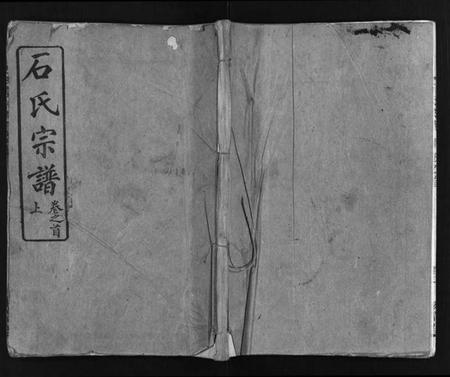 石氏宗譜
卷之首
上